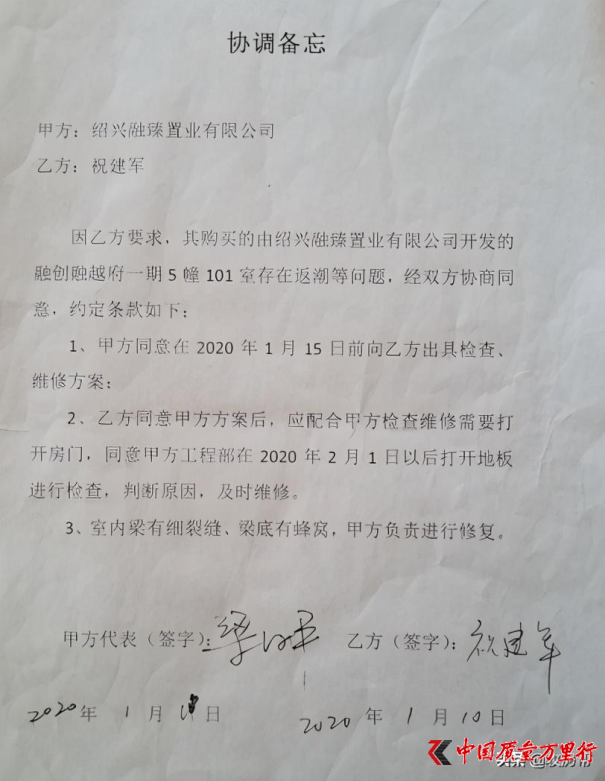 协调备忘
甲方：绍兴融臻置业有限公司
乙方：祝建军
因乙方要求，其购买的由绍兴融臻置业有限公司开发的
融创融越府一期 5 幢 101 室存在返潮等问题，经双方协商同
意，约定条款如下：
1、甲方同意在 2020 年 1 月 15 日前向乙方出具检查、
维修方案；
2、乙方同意甲方方案后，应配合甲方检查维修需要打
开房门，同意甲方工程部在 2020 年 2 月 1 日以后打开地板
进行检查，判断原因，及时维修。
3、室内梁有细裂缝、梁底有蜂窝，甲方负责进行修复。
甲方代表（签字）： 乙方（签字）：祝建军
2020 年 1 月 日 2020 年 1 月 10 日
中国质量万里行
头条